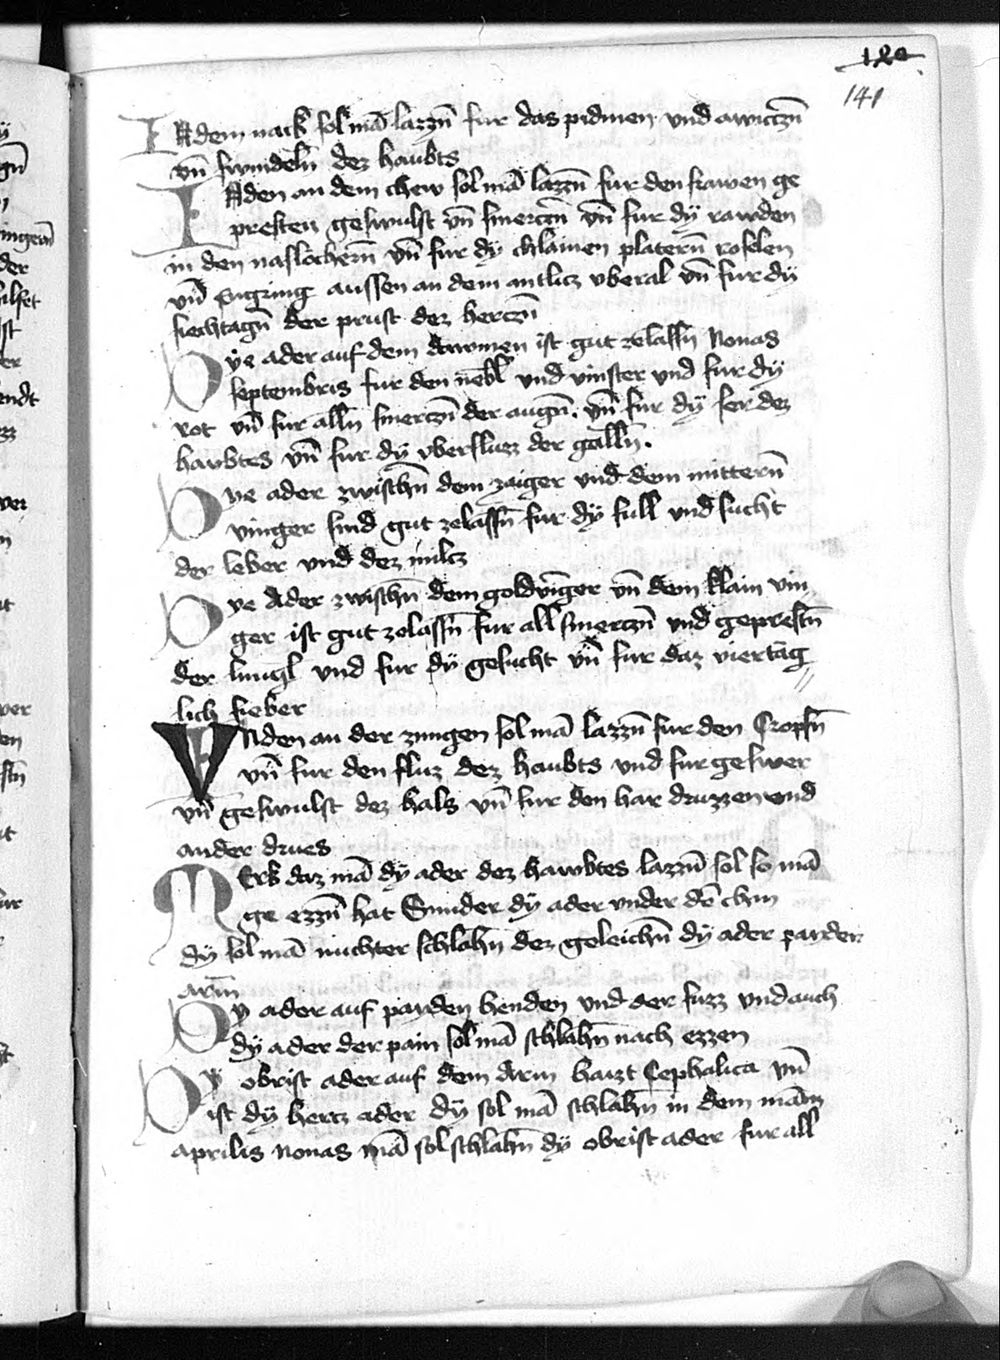 120
141
In dem nack sol mā lazzn̄ fur das pidmen und awiczn̄
vn̄ swindeln̄ dez haubts
In den an dem chew sol mā lazzn̄ fur den frawen ge
presten geswulst vn̄ smerczn̄ vn̄ fur dy rawden
in den naslochern̄ vn̄ fur dy chlainen platern̄ roselen
vn̄ Engring aussen an dem antlicz vberal vn̄ fur dy
siechtagn̄ der prust dez herczn̄
Dye ader auf dem dawmen ist gut zelassn̄ Nonas
septembris fur den nebl und vinster und fur dy
rot vn̄ fur alln̄ smerczn̄ der augn̄. vn̄ fur dy ser dez
hawbtes vn̄ fur dy vberfluzz der galln̄.
Dye ader zwischn̄ dem zaiger und dem mittern̄
vinger sind gut zelassn̄ fur dy full und sucht
der leber und dez milcz
Dye Ader zwischn̄ dem goldvinger vn̄ dem klain vin
ger ist gut zelassn̄ fur all smerczn̄ und geprestn̄
der lungl und fur dy gesucht vn̄ fur daz viertāg
lich fieber
Vnden an der zungen sol mā lazzn̄ fur den Cropfn̄
vn̄ fur den fluz dez haubts und fur geswer
vn̄ geswulst dez hals vn̄ fur den har druzzen und
ander drues
Merk daz mā dy ader dez hawbtes lazzn̄ sol so mā
ge ezzn̄ hat Sunder dy ader under dē chin
dy sol mā nuchter schlahn̄ dez geleichn̄ dy ader payder
arm̄
Dy ader auf payden henden und der fuzz und auch
dy ader der pain sol mā schlahn̄ nach ezzen
Dy obrist ader auf dem Arm haizt Cephalica vn̄
ist dy hertz ader dy sol mā schlahn̄ in dem mānn
aprilis nonas mā sol schlahn̄ dy obrist ader fur all